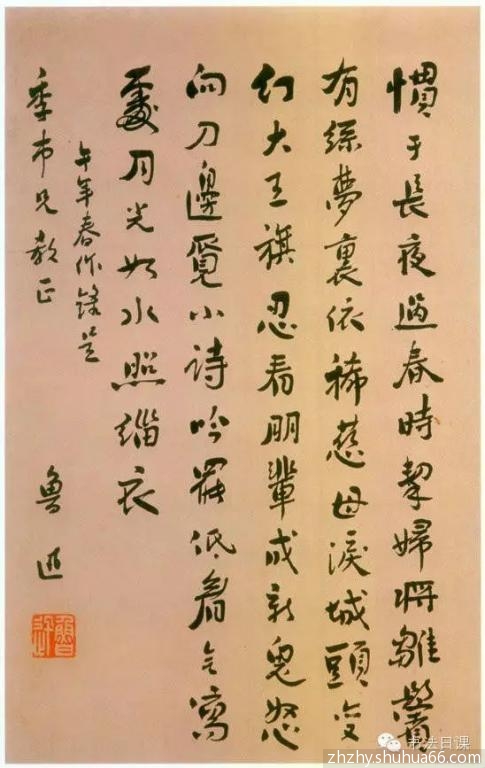 慣于長夜過春時挈婦將雛鬢
有絲夢裏依稀慈母淚城頭變
幻大王旗忍看朋輩成新鬼怒
向刀邊覓小詩吟罷低眉无寫
處月光如水照緇衣
午年春作錄呈
季市兄教正
魯迅
书法日课
zhzhy.shuhua66.com